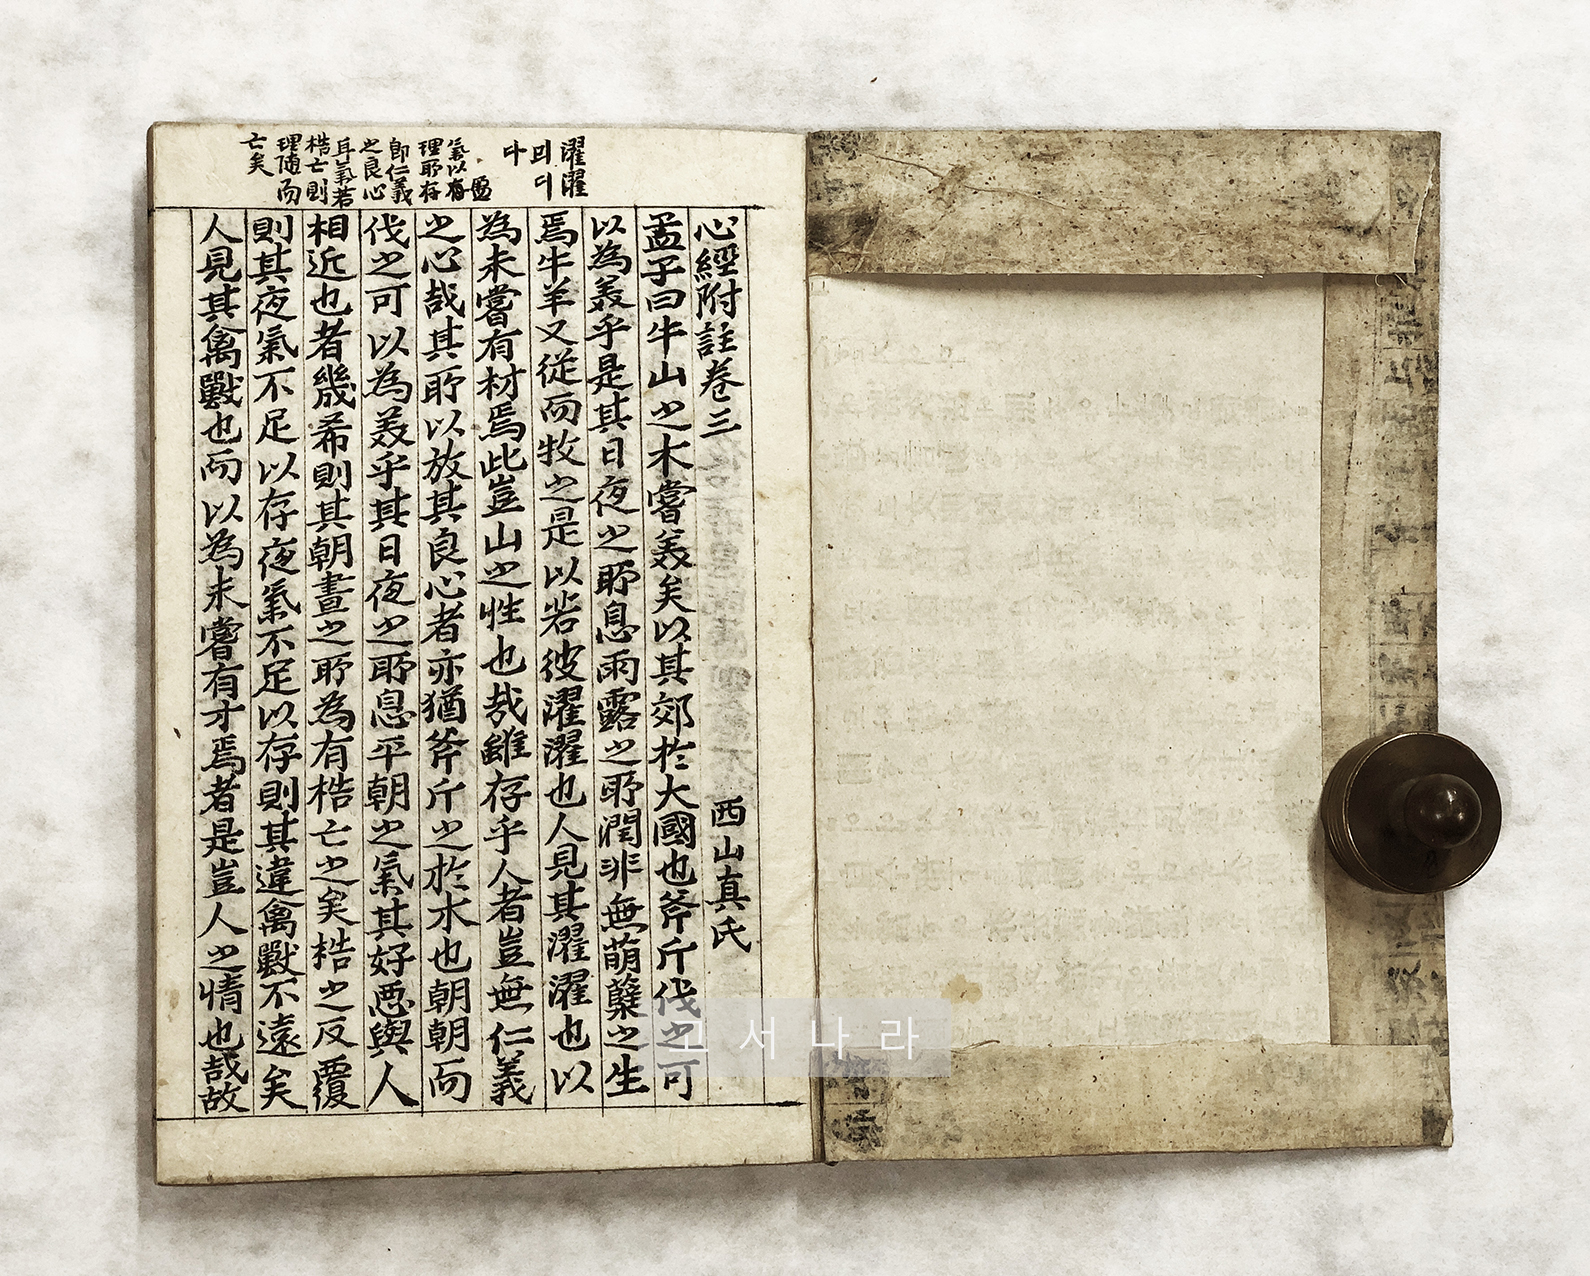 濯濯
믜디
다
氣以存
理所存
即仁義
之良心
耳氣若
梏亡則
理随而
亡矣
心經附註卷三 西山真氏
孟子曰牛山之木嘗美矣以其郊於大國也斧斤伐之可
以為美乎是其日夜之所息雨露之所潤非無萌蘖之生
焉牛羊又從而牧之是以若彼濯濯也人見其濯濯也以
為未嘗有材焉此豈山之性也哉雖存乎人者豈無仁義
之心哉其所以放其良心者亦猶斧斤之於木也朝朝而
伐之可以為美乎其日夜之所息平朝之氣其好惡與人
相近也者幾希則其朝晝之所為有梏亡之矣梏之反覆
則其夜氣不足以存夜氣不足以存則其違禽獸不遠矣
人見其禽獸也而以為未嘗有才焉者是豈人之情也哉故
고서나라